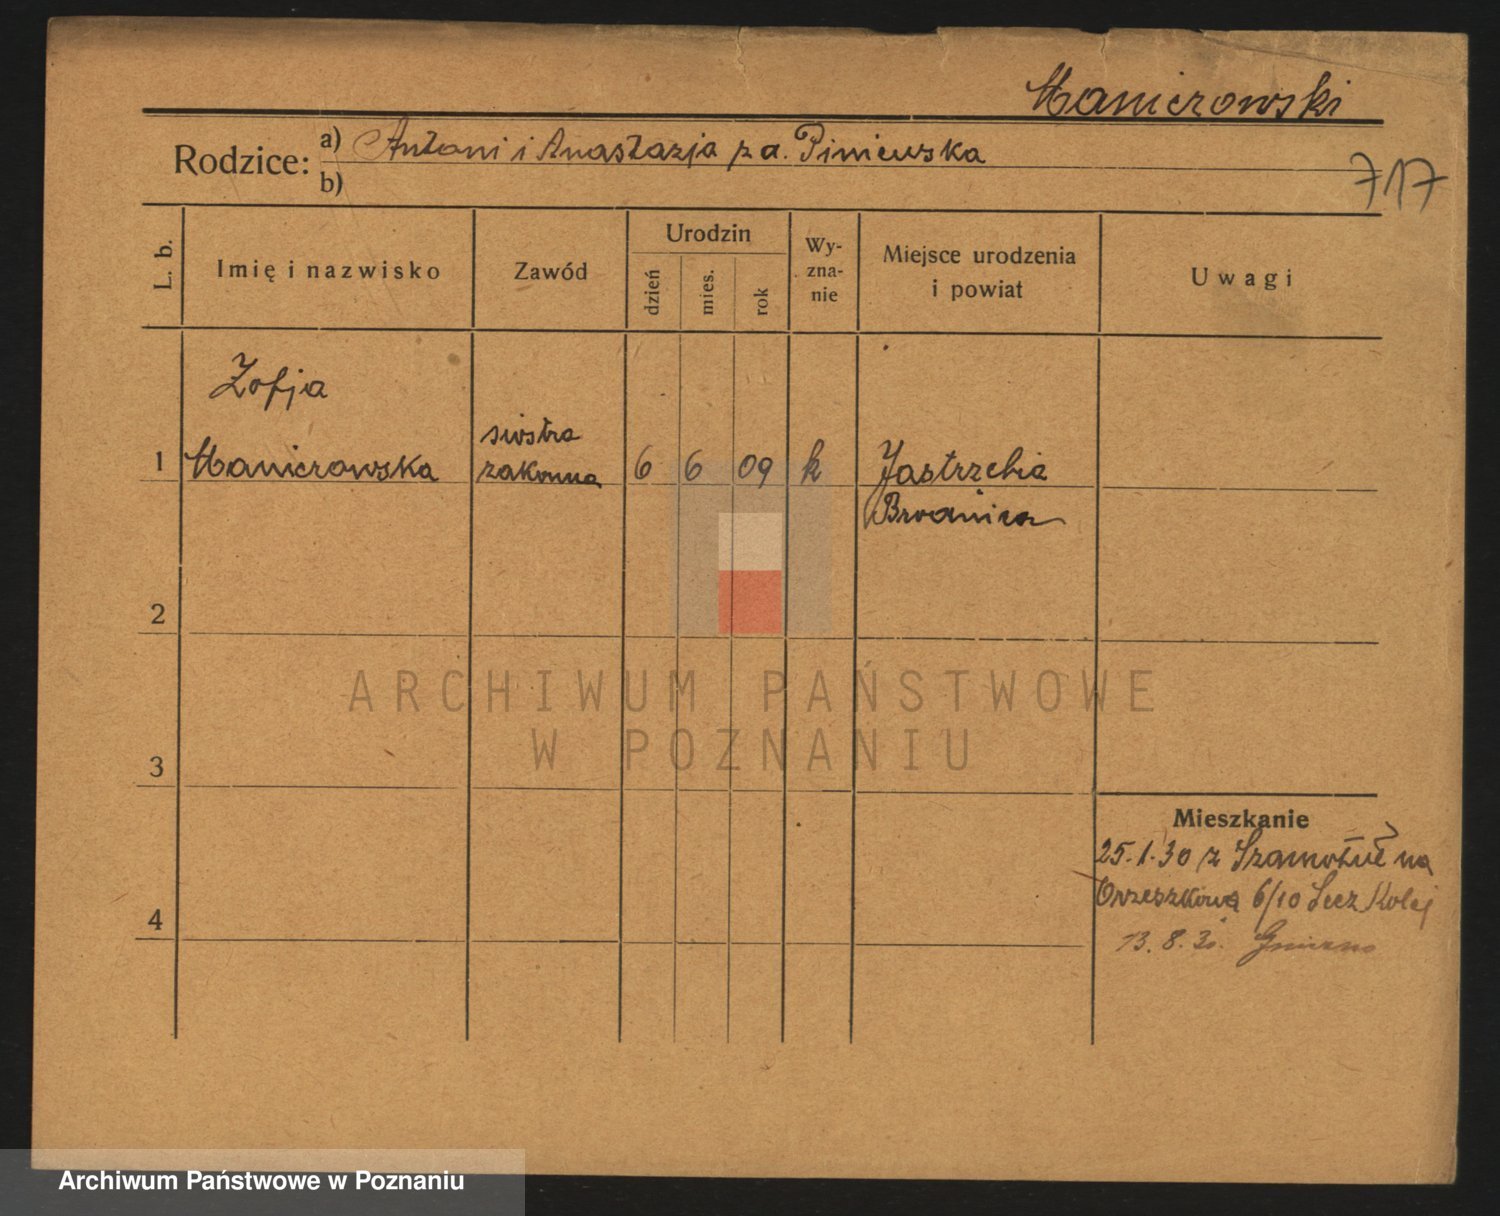 Maniczowski
Rodzice: a) Antoni i Anastazja z d. Piniewska
b)
717
L. b.
Imię i nazwisko
Zawód
Urodzin
dzień
mies.
rok
Wy-
zna-
nie
Miejsce urodzenia
i powiat
Uwagi
Zofja
1 Maniczowska
siostra
zakonna
6 6 09 k
Jastrzebia
Brodnica
2
3
4
ARCHIWUM PAŃSTWOWE
W POZNANIU
Mieszkanie
25.1.30 z Szamotuł na
Orzeszkowa 6/10 Kolej
13.8.30. Gniezno
Archiwum Państwowe w Poznaniu